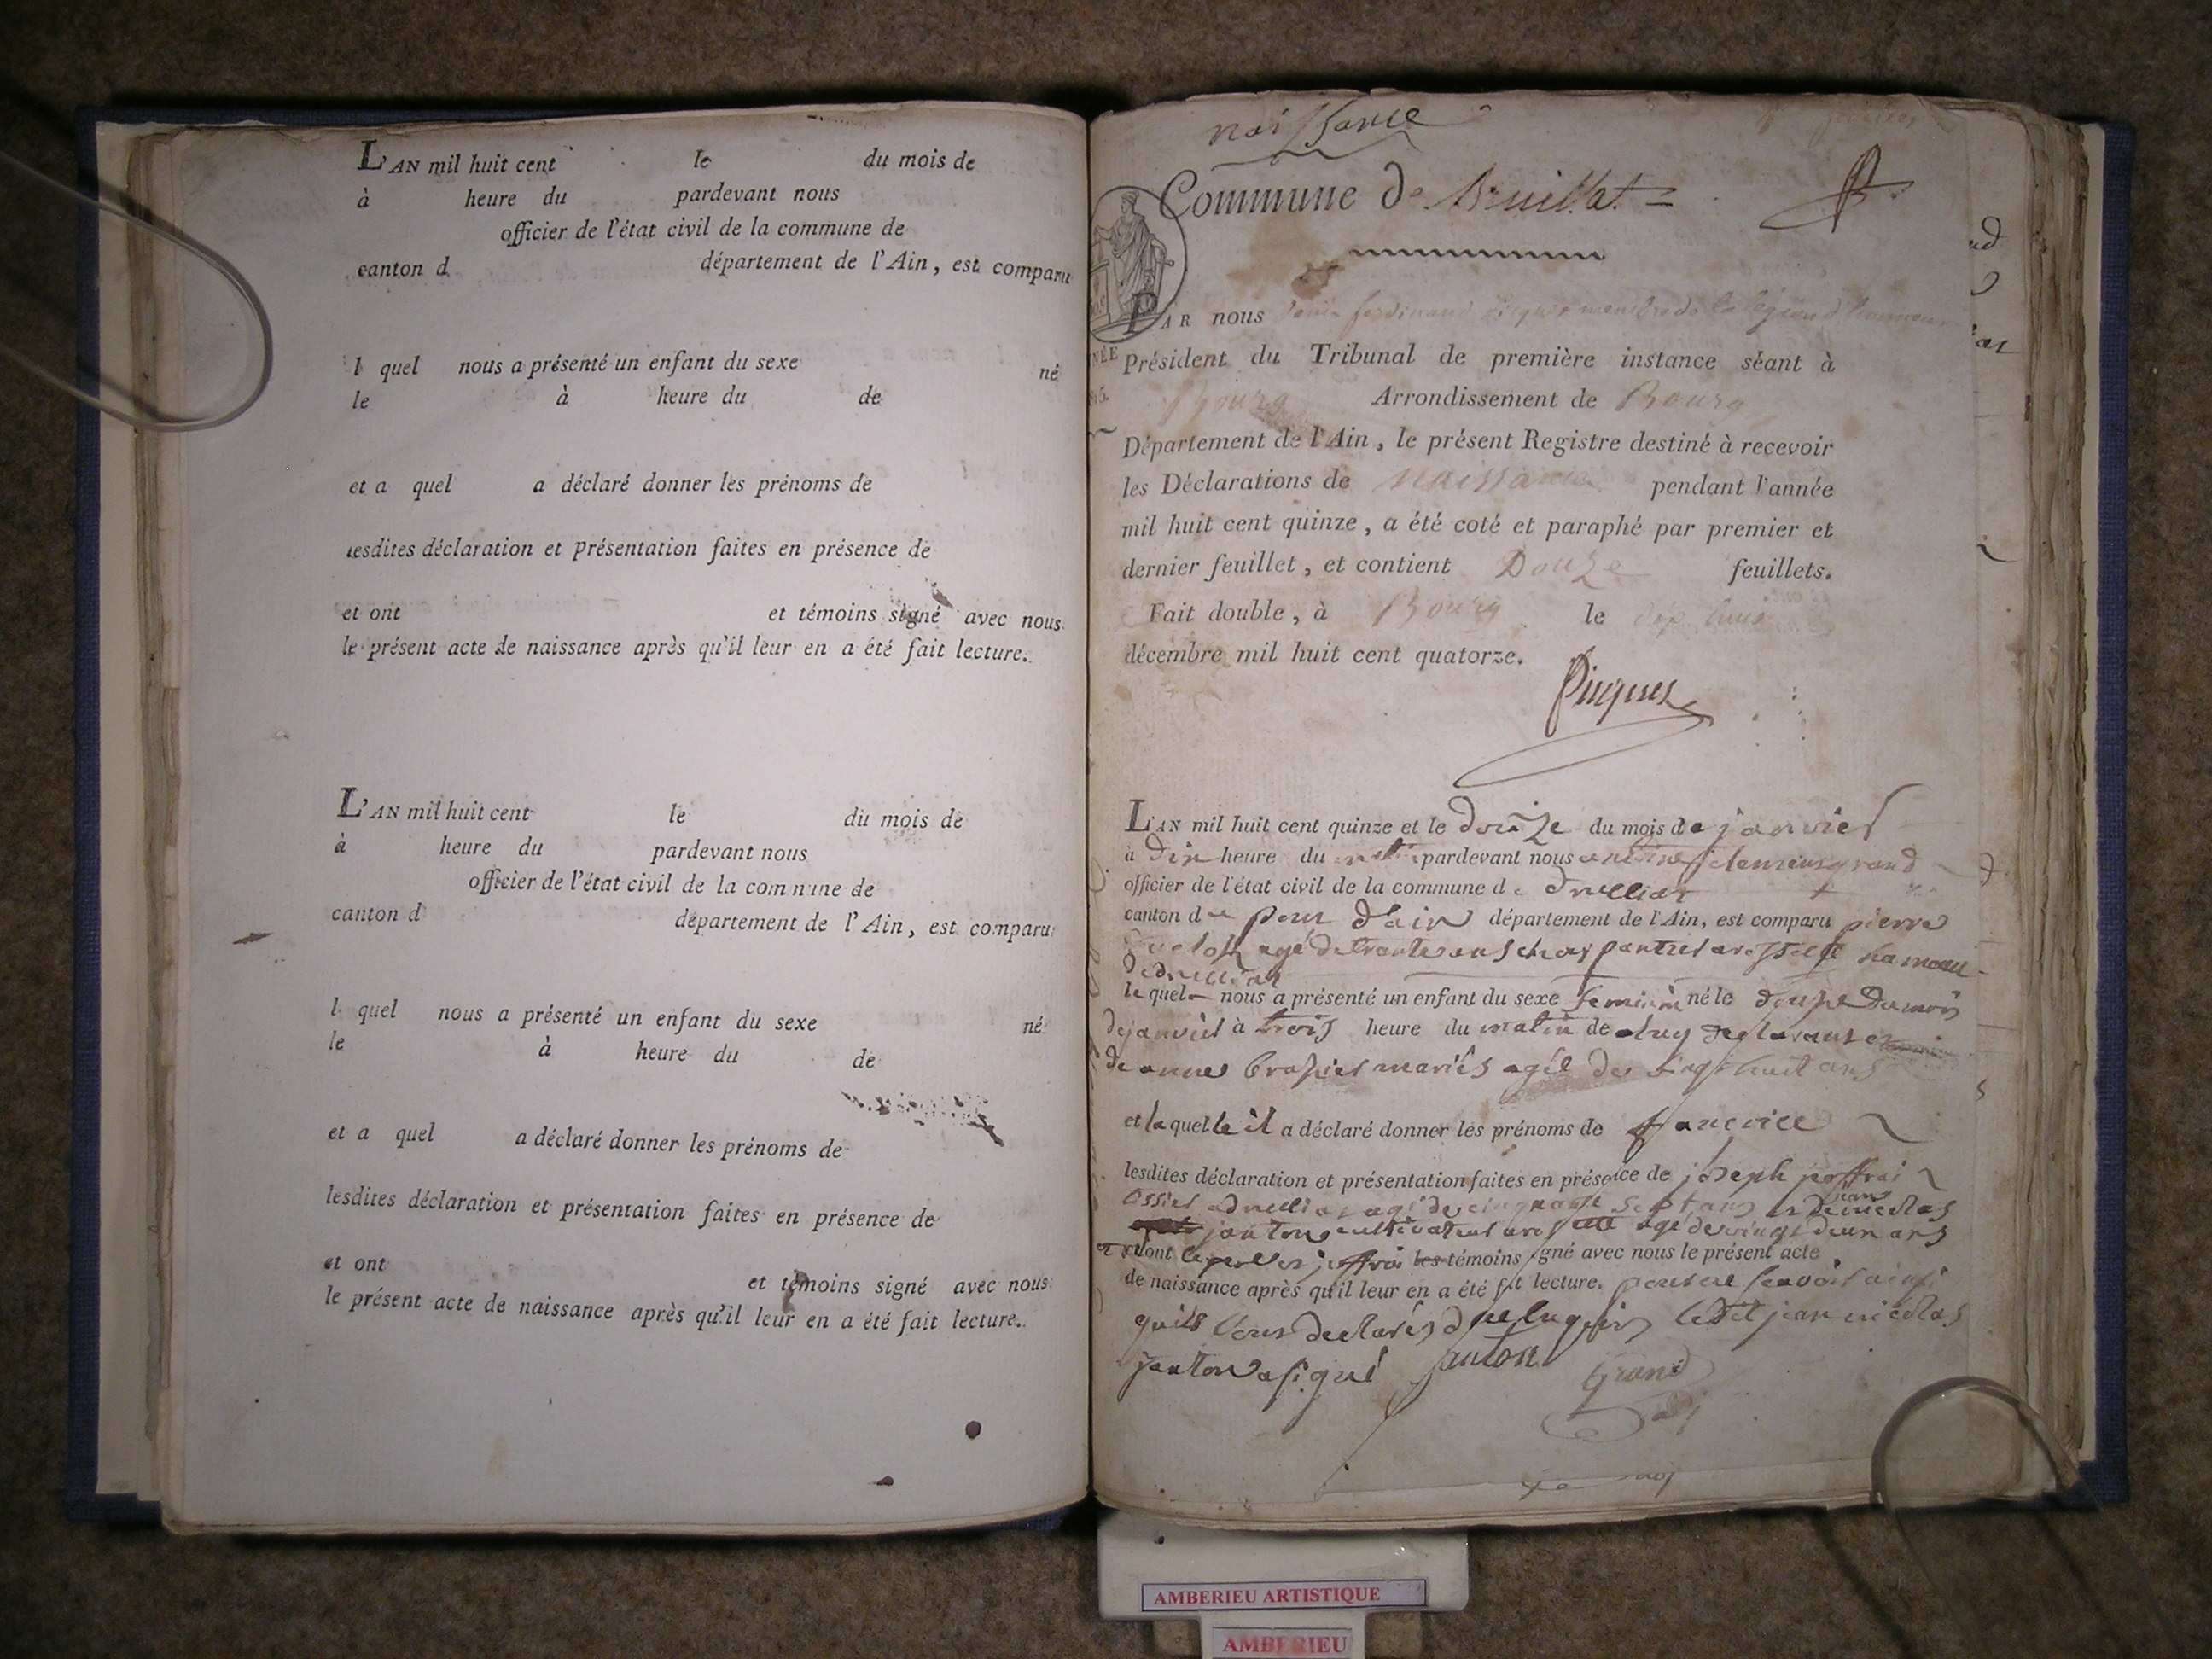 L'AN mil huit cent le du mois de
à heure du pardevant nous
officier de l'état civil de la commune de
canton d département de l'Ain, est comparu
l quel nous a présenté un enfant du sexe né
le à heure du de
et a quel a déclaré donner les prénoms de
lesdites déclaration et présentation faites en présence de
et ont et témoins signé avec nous
le présent acte de naissance après qu'il leur en a été fait lecture.
L'AN mil huit cent le du mois de
à heure du pardevant nous
officier de l'état civil de la commune de
canton d département de l'Ain, est comparu
l quel nous a présenté un enfant du sexe né
le à heure du de
et a quel a déclaré donner les prénoms de
lesdites déclaration et présentation faites en présence de
et ont et témoins signé avec nous
le présent acte de naissance après qu'il leur en a été fait lecture.
naissance
Commune de Druillat
PAR nous ferdinand membre de la légion d'honneur
Président du Tribunal de première instance séant à
Bourg Arrondissement de Bourg
Département de l'Ain, le présent Registre destiné à recevoir
les Déclarations de Naissance pendant l'année
mil huit cent quinze, a été coté et paraphé par premier et
dernier feuillet, et contient Douze feuillets.
Fait double, à Bourg le
décembre mil huit cent quatorze.
Picquet
L'AN mil huit cent quinze et le douze du mois de janvier
à Dix heure du matin pardevant nous grand
officier de l'état civil de la commune de druilliat
canton de pont d'ain département de l'Ain, est comparu pierre
agé de trante ans charpantier a hameau
de druilliat
lequel nous a présenté un enfant du sexe feminin né le douze du mois
de janvier à trois heure du matin de
de anne mariés agé de vingt huit ans
et laquelle il a déclaré donner les prénoms de francoise
lesdites déclaration et présentation faites en présence de joseph joffrai
a druilliat agé de cinquante sept ans et de jean nicolas
janton cultivateur a agé de vingt deux ans
et ont le joffrai les témoins signé avec nous le présent acte
de naissance après qu'il leur en a été fait lecture. pour ne savoir ainsi
quils lons declarés de ledit jean nicolas
janton a signé janton Grand
AMBERIEU ARTISTIQUE
AMBERIEU